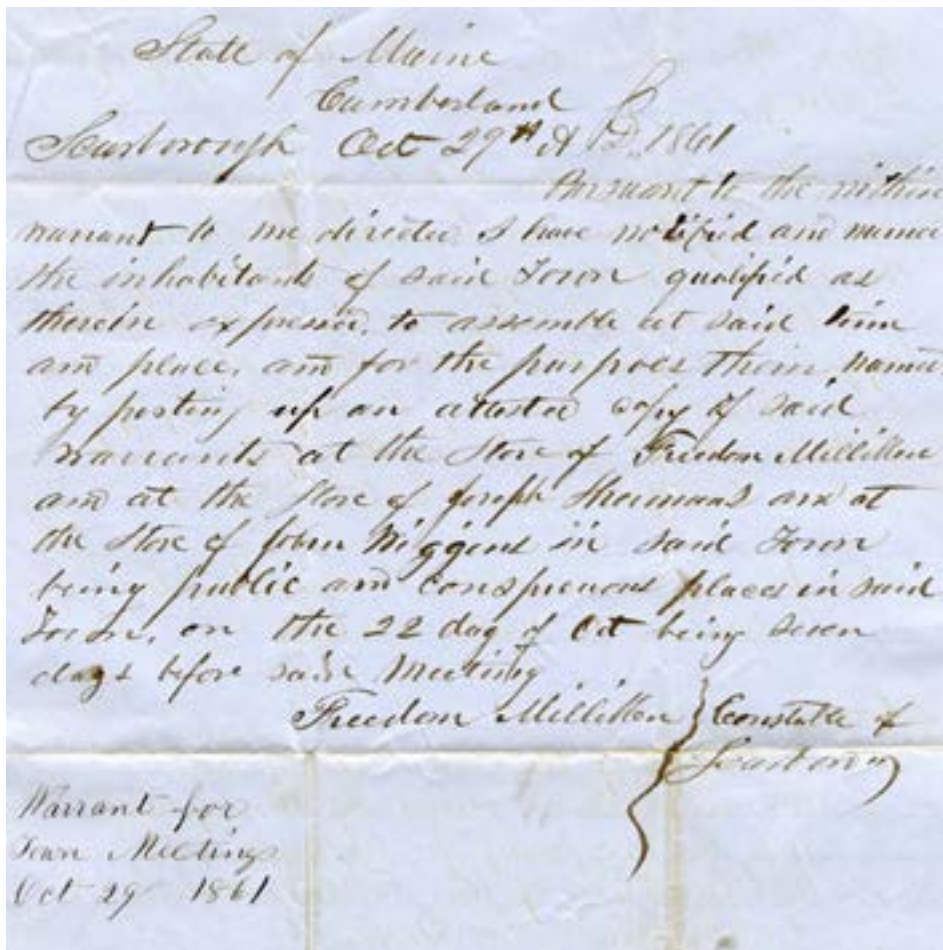 State of Maine
Cumberland
Scarborough Oct 29th A D. 1861
Pursuant to the within
warrant to me directed I have notified and warned
the inhabitants of said Town qualified as
therein expressed, to assemble at said time
and place, and for the purposes therein named
by posting up an attested copy of said
warrants at the Store of Freedom Milliken
and at the Store of Joseph and at
the Store of John Wiggins in said Town
being public and conspicuous places in said
Town, on the 22 day of Oct being seven
days before said Meeting
Freedom Milliken } Constable of
Scarboro
Warrant for
Town Meeting
Oct 29 1861